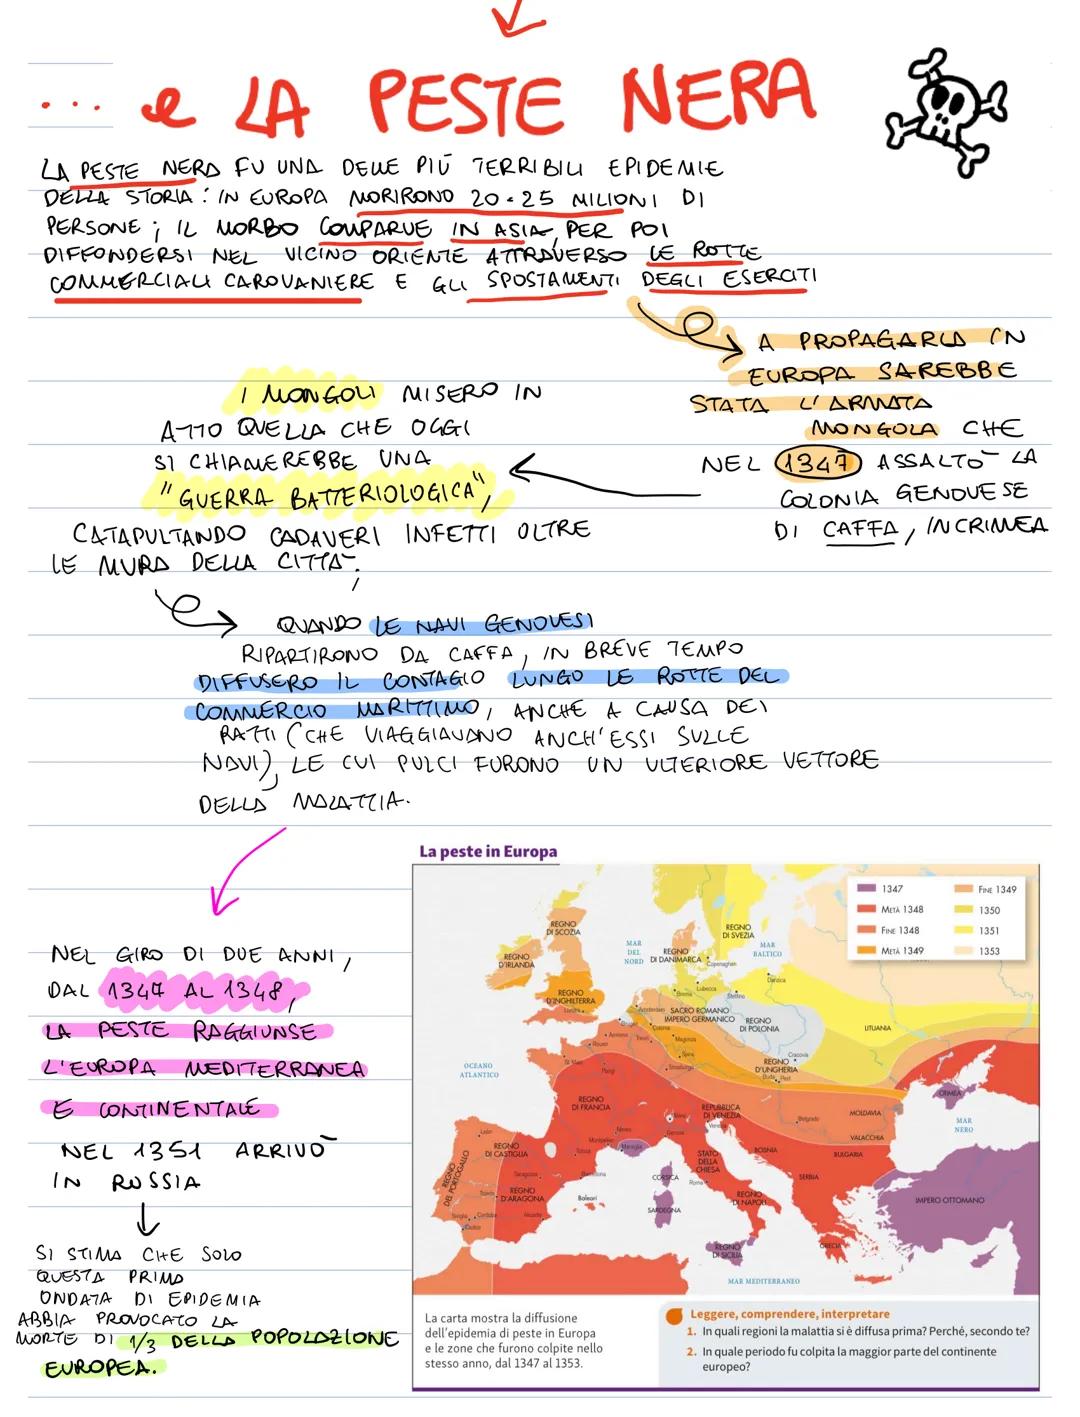 ... e LA PESTE NERA
LA PESTE NERA FU UNA DELLE PIÙ TERRIBILI EPIDEMIE
DELLA STORIA: IN EUROPA MORIRONO 20-25 MILIONI DI
PERSONE; IL MORBO COMPARVE IN ASIA, PER POI
DIFFONDERSI NEL VICINO ORIENTE ATTRAVERSO LE ROTTE
COMMERCIALI CAROVANIERE E GLI SPOSTAMENTI DEGLI ESERCITI
A PROPAGARLA IN
EUROPA SAREBBE
STATA L'ARMATA
MONGOLA CHE
NEL 1347 ASSALTÒ LA
COLONIA GENOVESE
DI CAFFA, IN CRIMEA
I MONGOLI MISERO IN
ATTO QUELLA CHE OGGI
SI CHIAMEREBBE UNA
"GUERRA BATTERIOLOGICA",
CATAPULTANDO CADAVERI INFETTI OLTRE
LE MURA DELLA CITTÀ;
QUANDO LE NAVI GENOVESI
RIPARTIRONO DA CAFFA, IN BREVE TEMPO
DIFFUSERO IL CONTAGIO LUNGO LE ROTTE DEL
COMMERCIO MARITTIMO, ANCHE A CAUSA DEI
RATTI (CHE VIAGGIAVANO ANCH'ESSI SULLE
NAVI), LE CUI PULCI FURONO UN ULTERIORE VETTORE
DELLA MALATTIA.
NEL GIRO DI DUE ANNI,
DAL 1347 AL 1348,
LA PESTE RAGGIUNSE
L'EUROPA MEDITERRANEA
E CONTINENTALE
NEL 1351 ARRIVÒ
IN RUSSIA
SI STIMA CHE SOLO
QUESTA PRIMA
ONDATA DI EPIDEMIA
ABBIA PROVOCATO LA
MORTE DI 1/3 DELLA POPOLAZIONE
EUROPEA.
La peste in Europa
1347
METÀ 1348
FINE 1348
METÀ 1349
FINE 1349
1350
1351
1353
REGNO
DI SCOZIA
REGNO
D'IRLANDA
REGNO
D'INGHILTERRA
Londra
MAR
DEL
NORD
REGNO
DI DANIMARCA
Copenaghen
REGNO
DI SVEZIA
MAR
BALTICO
Danzica
Lubecca
Stettino
Brema
Amsterdam
SACRO ROMANO
IMPERO GERMANICO
REGNO
DI POLONIA
LITUANIA
Bruges
Colonia
Amiens
Treviri
Magonza
Rouen
Spira
St. Malo
Parigi
Strasburgo
Cracovia
REGNO
D'UNGHERIA
Buda
Pest
OCEANO
ATLANTICO
REGNO
DI FRANCIA
REPUBBLICA
DI VENEZIA
Venezia
Milano
Genova
Belgrado
MOLDAVIA
VALACCHIA
CRIMEA
MAR
NERO
León
REGNO
DI CASTIGLIA
Nimes
Montpellier
Marsiglia
Tolosa
STATO
DELLA
CHIESA
Roma
BOSNIA
BULGARIA
SERBIA
REGNO
DEL PORTOGALLO
Saragozza
Barcellona
REGNO
D'ARAGONA
Baleari
CORSICA
SARDEGNA
REGNO
DI NAPOLI
IMPERO OTTOMANO
Toledo
Siviglia
Cordoba
Alicante
Cadice
REGNO
DI SICILIA
GRECIA
MAR MEDITERRANEO
La carta mostra la diffusione
dell'epidemia di peste in Europa
e le zone che furono colpite nello
stesso anno, dal 1347 al 1353.
Leggere, comprendere, interpretare
1. In quali regioni la malattia si è diffusa prima? Perché, secondo te?
2. In quale periodo fu colpita la maggior parte del continente
europeo?